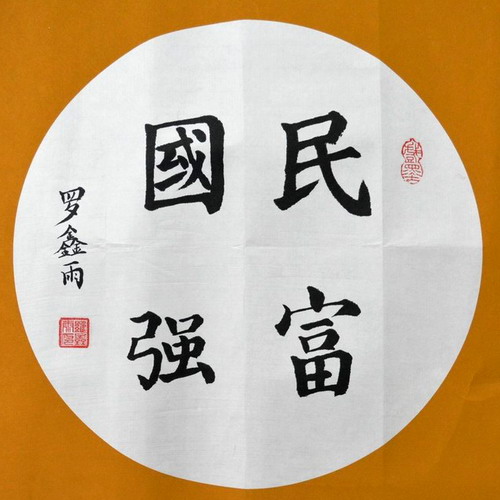 民富
國强
罗鑫雨